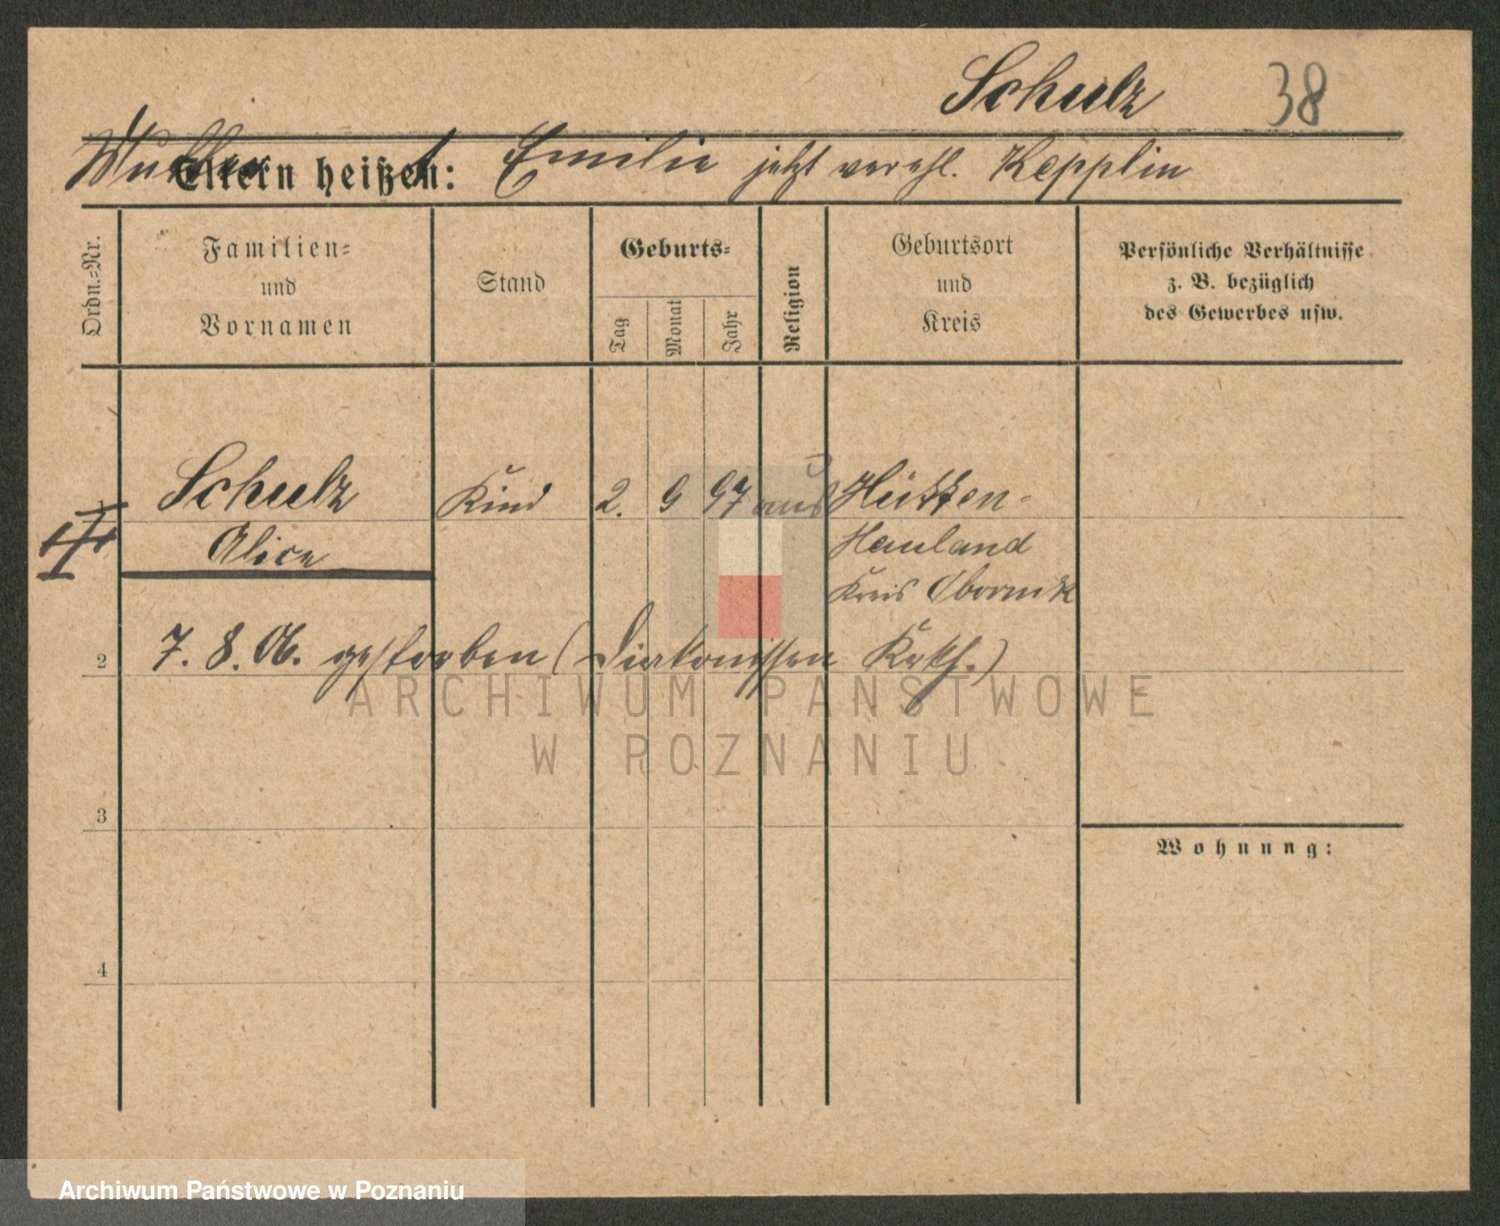 Schulz 38
Mutter
Eltern heißen: Emilie jetzt verehl. Kepplin
Ordn.-Nr.
Familien-
und
Vornamen
Stand
Geburts-
Tag
Monat
Jahr
Religion
Geburtsort
und
Kreis
Persönliche Verhältnisse
z. B. bezüglich
des Gewerbes usw.
1 Schulz Kind 2. 9 97 aus Hütten-
Alice Hauland
Kreis Obornik
2 7. 8. 06. gestorben (Diakonissen Krkh.)
3
Wohnung:
4
ARCHIWUM PAŃSTWOWE
W POZNANIU
Archiwum Państwowe w Poznaniu